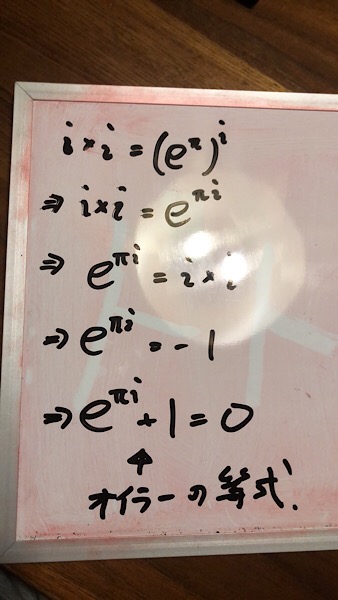 i×i = (e^π)^i
⇒ i×i = e^πi
⇒ e^πi = i×i
⇒ e^πi = -1
⇒ e^πi + 1 = 0
↑
オイラーの等式!